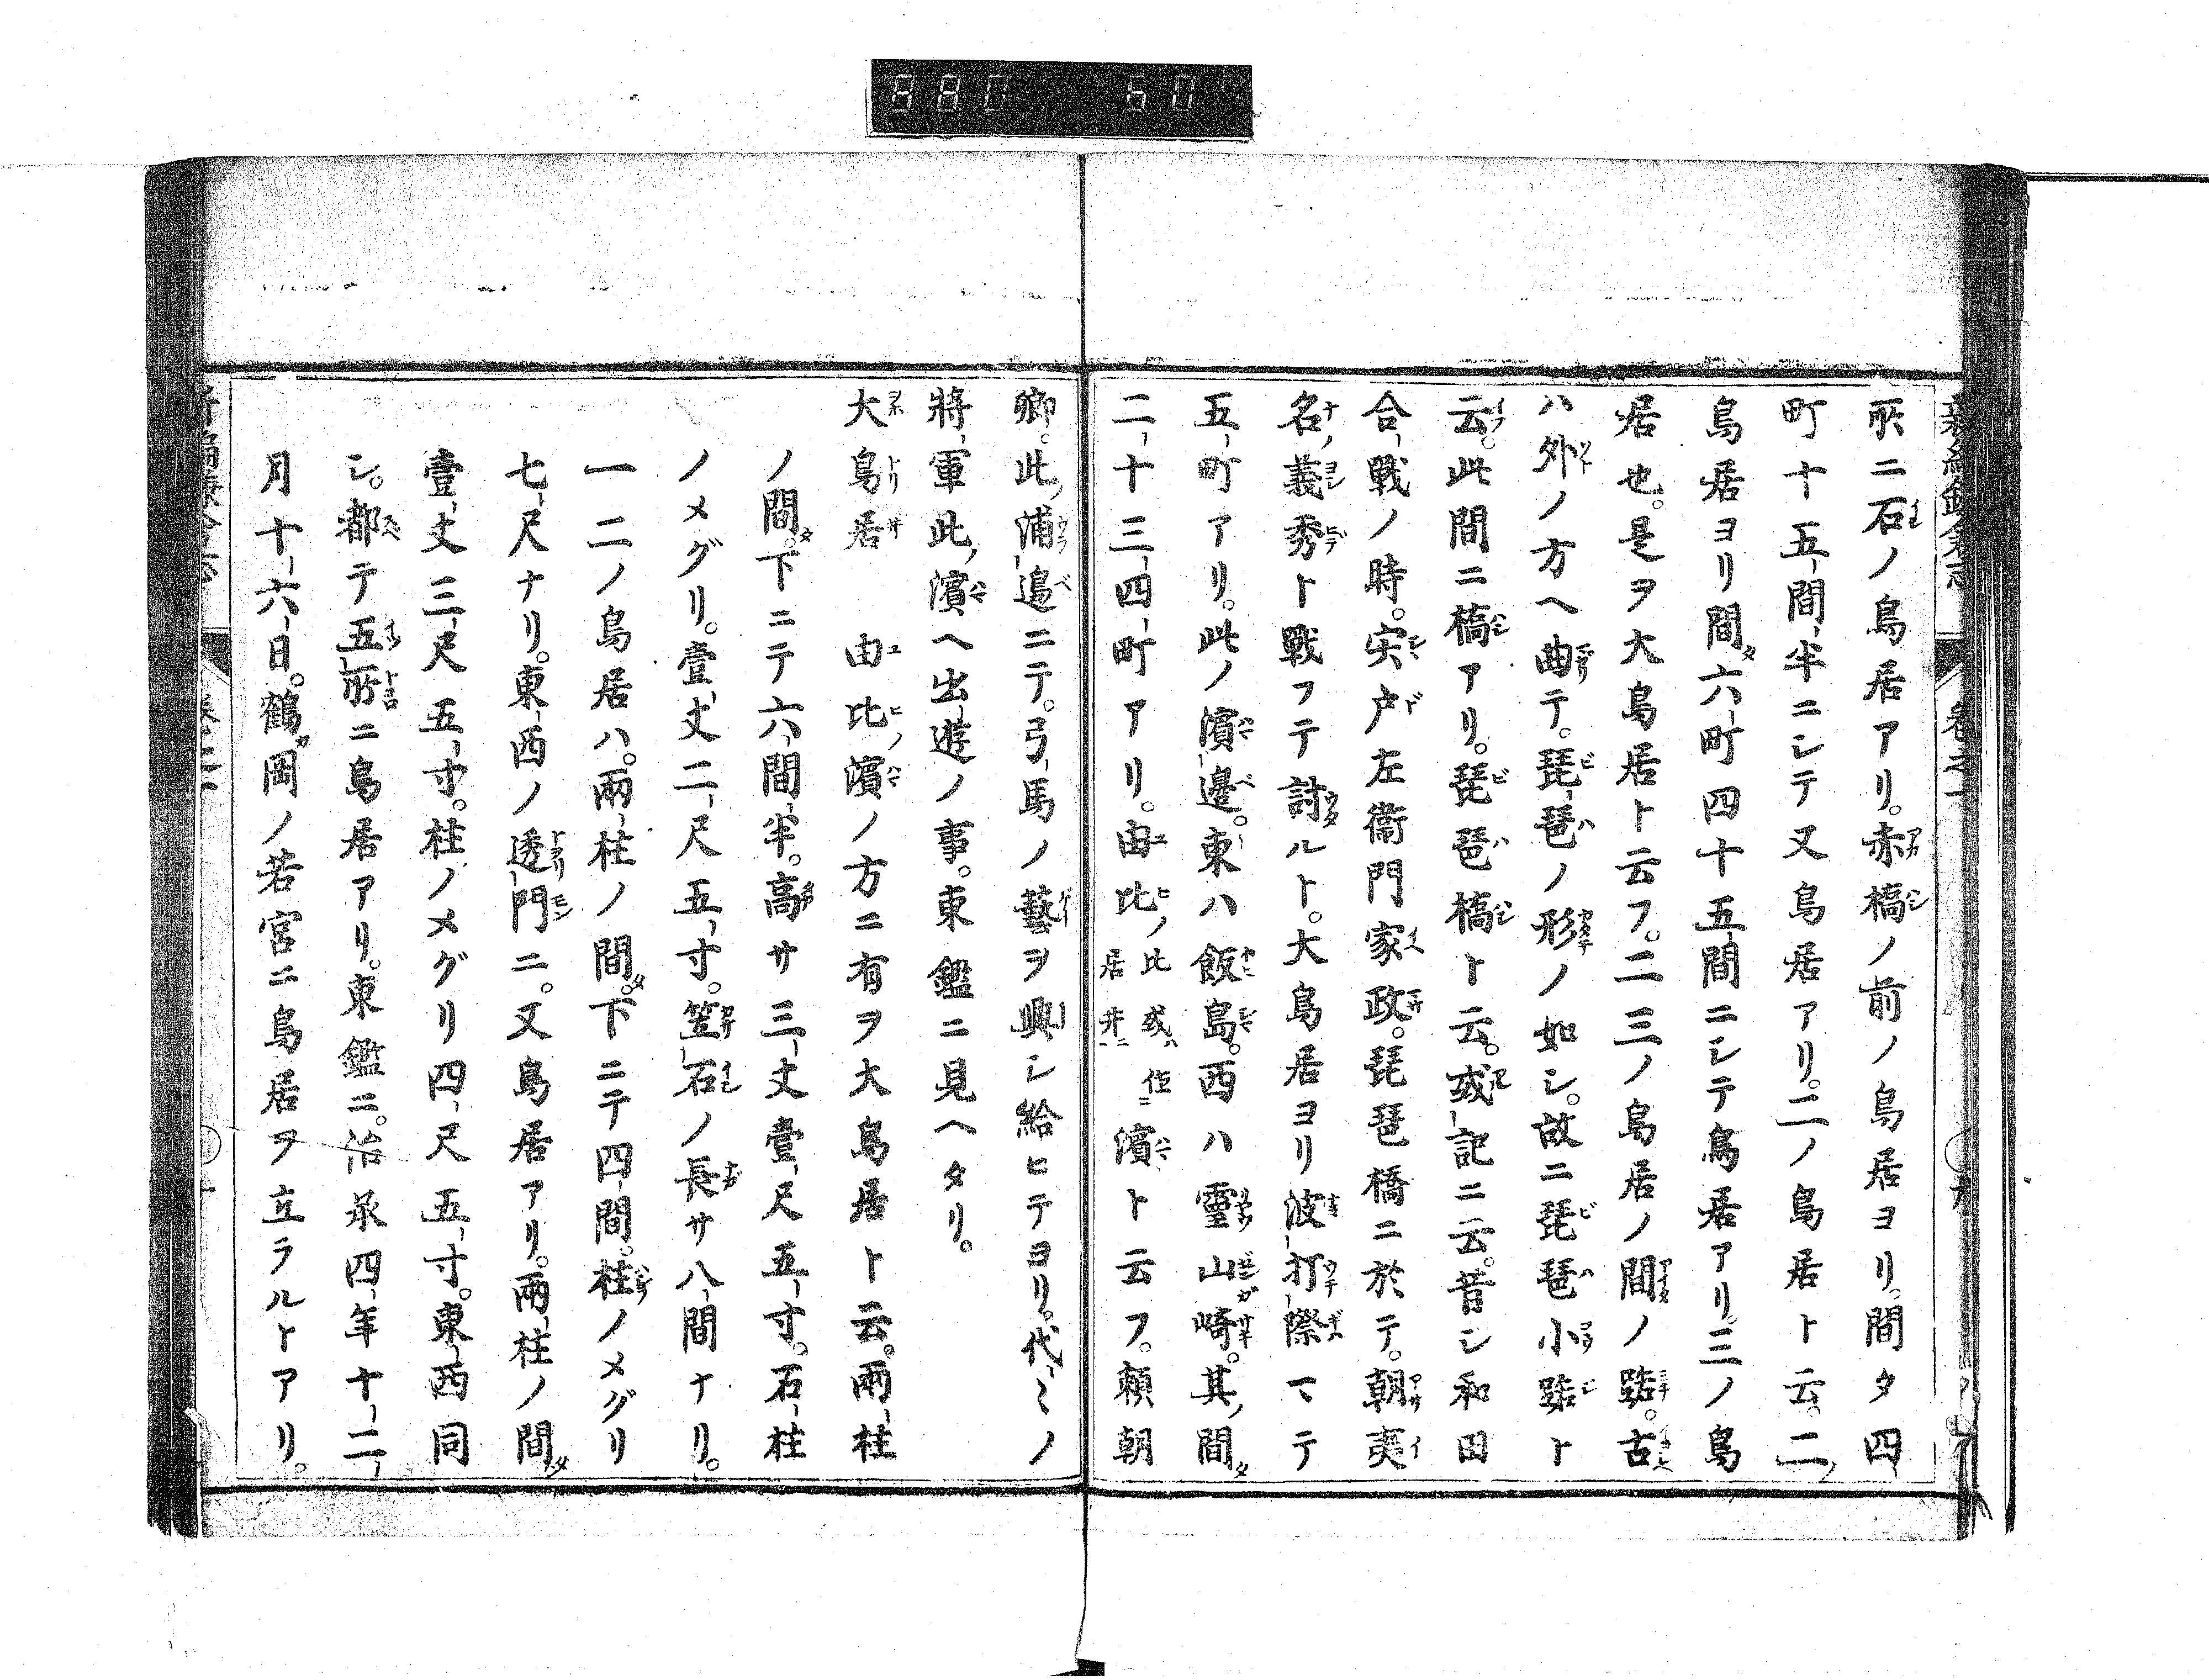 所ニ石ノ鳥居アリ。赤橋ノ前ノ鳥居ヨリ。間タ四
町十五間半ニシテ又鳥居アリ。二ノ鳥居ト云。二ノ
鳥居ヨリ間タ六町四十五間ニシテ鳥居アリ。三ノ鳥
居也。是ヲ大鳥居ト云フ。二三ノ鳥居ノ間ノ路。古
ハ外ノ方ヘ曲テ。琵琶ノ形ノ如シ。故ニ琵琶小路ト
云。此間ニ橋アリ。琵琶橋ト云。或記ニ云。昔シ和田
合戰ノ時。宍戸左衞門家政。琵琶橋ニ於テ。朝夷
名ノ義秀ト戰フテ討ルト。大鳥居ヨリ波打際マテ
五町アリ。此ノ濱邊。東ハ飯島。西ハ靈山崎。其ノ間タ
二十三四町アリ。由比ノ比或ハ作ニ居井ニ濱ト云フ。賴朝
卿。此ノ浦邊ニテ。弓馬ノ藝ヲ興シ給ヒテヨリ。代々ノ
將軍此ノ濱ヘ出遊ノ事。東鑑ニ見ヘタリ。
大鳥居 由比ノ濱ノ方ニ有ヲ大鳥居ト云。兩柱
ノ間タ。下ニテ六間半。高サ三丈壹尺五寸。石柱
ノメグリ。壹丈二尺五寸。笠石ノ長サ八間ナリ。
一二ノ鳥居ハ。兩柱ノ間タ。下ニテ四間。柱ノメグリ
七尺ナリ。東西ノ透門ニ。又鳥居アリ。兩柱ノ間タ
壹丈三尺五寸。柱ノメグリ四尺五寸。東西同
シ。都テ五所ニ鳥居アリ。東鑑ニ。治承四年十二
月十六日。鶴岡ノ若宮ニ鳥居ヲ立ラルトアリ。